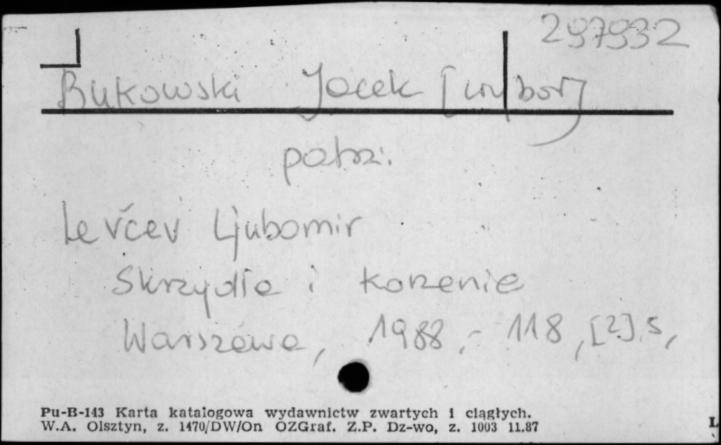 297932
Bukowski Jacek [wybór]
patrz:
Levčev Ljubomir
Skrzydła i korzenie
Warszawa, 1988.- 118, [2] s,
Pu-B-143 Karta katalogowa wydawnictw zwartych i ciągłych.
W.A. Olsztyn, z. 1470/DW/On OZGraf. Z.P. Dz-wo, z. 1003 11.87